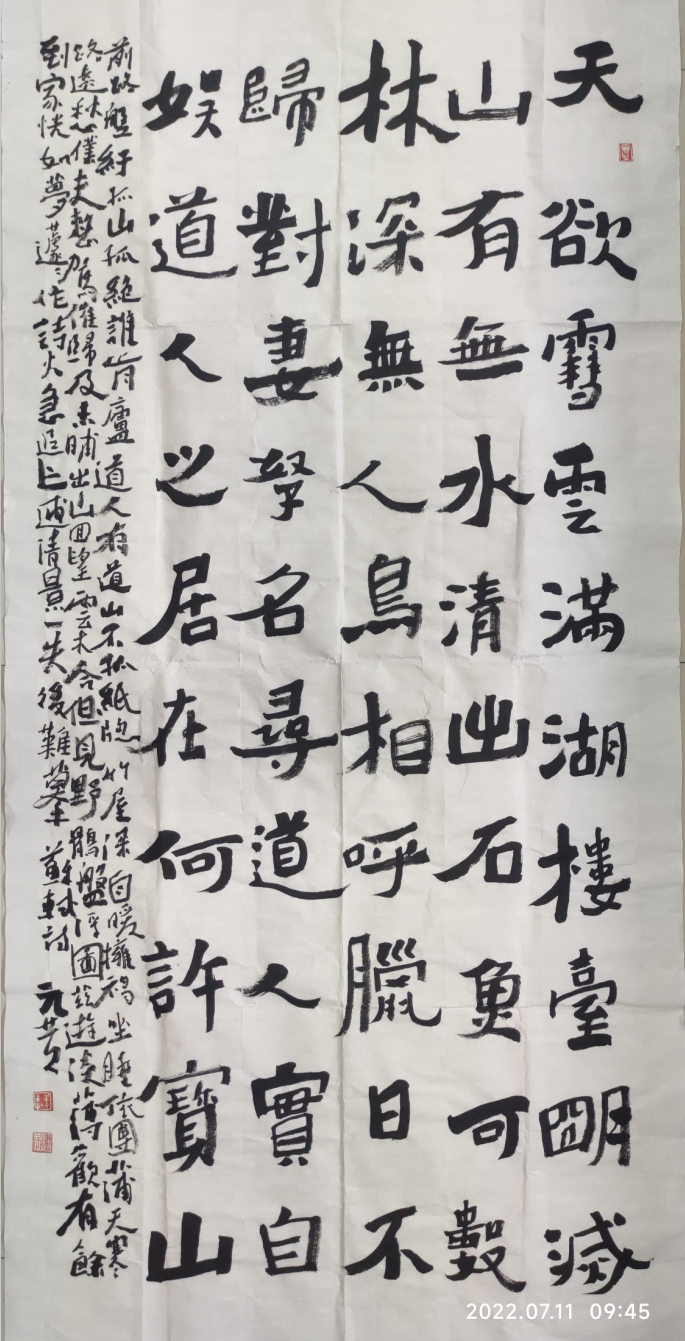 天欲雪雲滿湖樓臺朙滅
山有無水清出石魚可數
林深無人鳥相呼臘日不
歸對妻孥名尋道人實自
娛道人之居在何許寶山
前路盤紆孤山孤絕誰肯廬道人有道山不孤紙窗竹屋深自暖擁褐坐睡依團蒲天寒
路遠愁僕夫整駕催歸及未晡出山回望雲木合但見野鶻盤浮圖茲遊淡薄歡有餘
到家怳如夢蘧蘧作詩火急追亡逋清景一失後難摹 蘇軾詩 元
2022.07.11 09:45